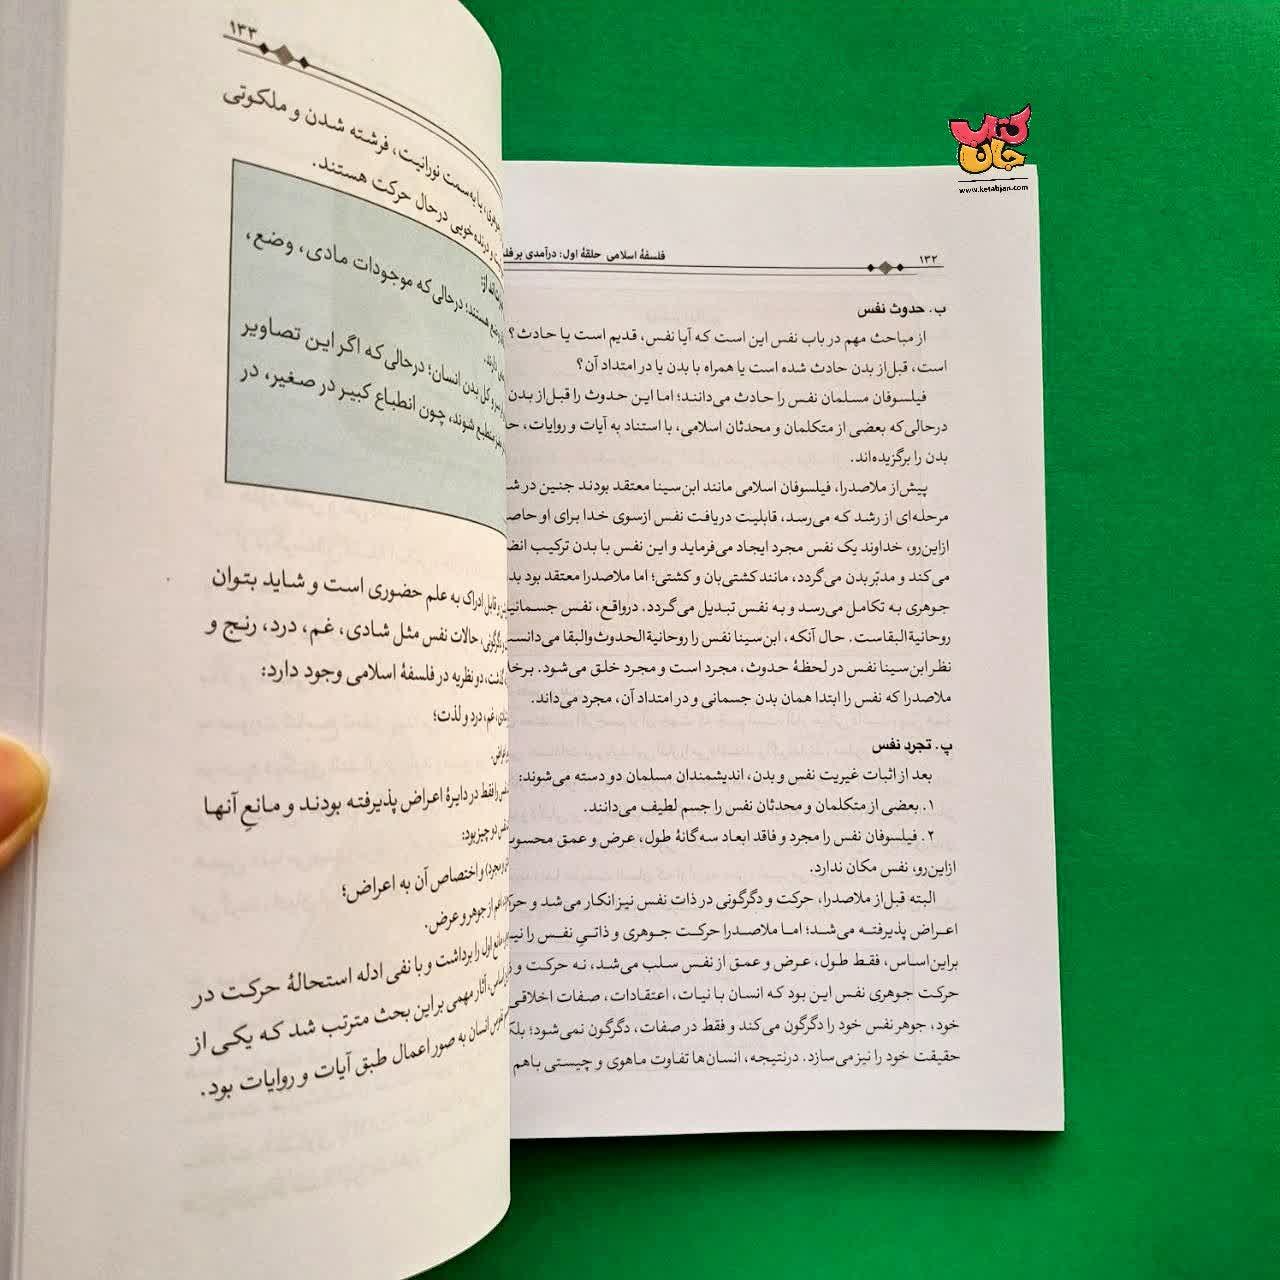 کتاب
جان
www.ketabjan.com
۱۳۲
فلسفهٔ اسلامی حلقهٔ اول: درآمدی بر
ب. حدوث نفس
از مباحث مهم در باب نفس این است که آیا نفس، قدیم است یا حادث؟
است، قبل از بدن حادث شده است یا همراه با بدن یا در امتداد آن؟
فیلسوفان مسلمان نفس را حادث می‌دانند؛ اما این حدوث را قبل از بدن
درحالی‌که بعضی از متکلمان و محدثان اسلامی، با استناد به آیات و روایات،
بدن را برگزیده‌اند.
پیش از ملاصدرا، فیلسوفان اسلامی مانند ابن‌سینا معتقد بودند جنین در
مرحله‌ای از رشد که می‌رسد، قابلیت دریافت نفس ازسوی خدا برای او
ازاین‌رو، خداوند یک نفس مجرد ایجاد می‌فرماید و این نفس با بدن ترکیب
می‌کند و مدبّر بدن می‌گردد، مانند کشتی‌بان و کشتی؛ اما ملاصدرا معتقد بود
جوهری به تکامل می‌رسد و به نفس تبدیل می‌گردد. درواقع، نفس
روحانیةالبقاست. حال آنکه، ابن‌سینا نفس را روحانیةالحدوث والبقا
نظر ابن‌سینا نفس در لحظهٔ حدوث، مجرد است و مجرد خلق می‌شود.
ملاصدرا که نفس را ابتدا همان بدن جسمانی و در امتداد آن، مجرد می‌داند.
پ. تجرد نفس
بعد از اثبات غیریت نفس و بدن، اندیشمندان مسلمان دو دسته می‌شوند:
۱. بعضی از متکلمان و محدثان نفس را جسم لطیف می‌دانند.
۲. فیلسوفان نفس را مجرد و فاقد ابعاد سه‌گانهٔ طول، عرض و عمق
ازاین‌رو، نفس مکان ندارد.
البته قبل از ملاصدرا، حرکت و دگرگونی در ذات نفس نیز انکار می‌شد و
اعراض پذیرفته می‌شد؛ اما ملاصدرا حرکت جوهری و ذاتیِ نفس را
براین‌اساس، فقط طول، عرض و عمق از نفس سلب می‌شد، نه حرکت و
حرکت جوهری نفس این بود که انسان با نیات، اعتقادات، صفات اخلاقی
خود، جوهر نفس خود را دگرگون می‌کند و فقط در صفات، دگرگون نمی‌شود؛
حقیقت خود را نیز می‌سازد. درنتیجه، انسان‌ها تفاوت ماهوی و چیستی باهم
۱۳۳
یا به‌سمت نورانیت، فرشته شدن و ملکوتی
و درنده‌خویی درحال حرکت هستند.
هستند؛ درحالی‌که موجودات مادی، وضع،
دارند.
و کل بدن انسان؛ درحالی‌که اگر این تصاویر
منطبع شوند، چون انطباع کبیر در صغیر، در
قابل ادراک به علم حضوری است و شاید بتوان
حالات نفس مثل شادی، غم، درد، رنج و
دو نظریه در فلسفهٔ اسلامی وجود دارد:
غم، درد و لذت؛
را فقط در دایرهٔ اعراض پذیرفته بودند و مانعِ آنها
دو چیز بود:
و اختصاص آن به اعراض؛
از جوهر و عرض.
مانع اول را برداشت و با نفی ادله استحالهٔ حرکت در
آثار مهمی بر این بحث مترتب شد که یکی از
انسان به صور اعمال طبق آیات و روایات بود.